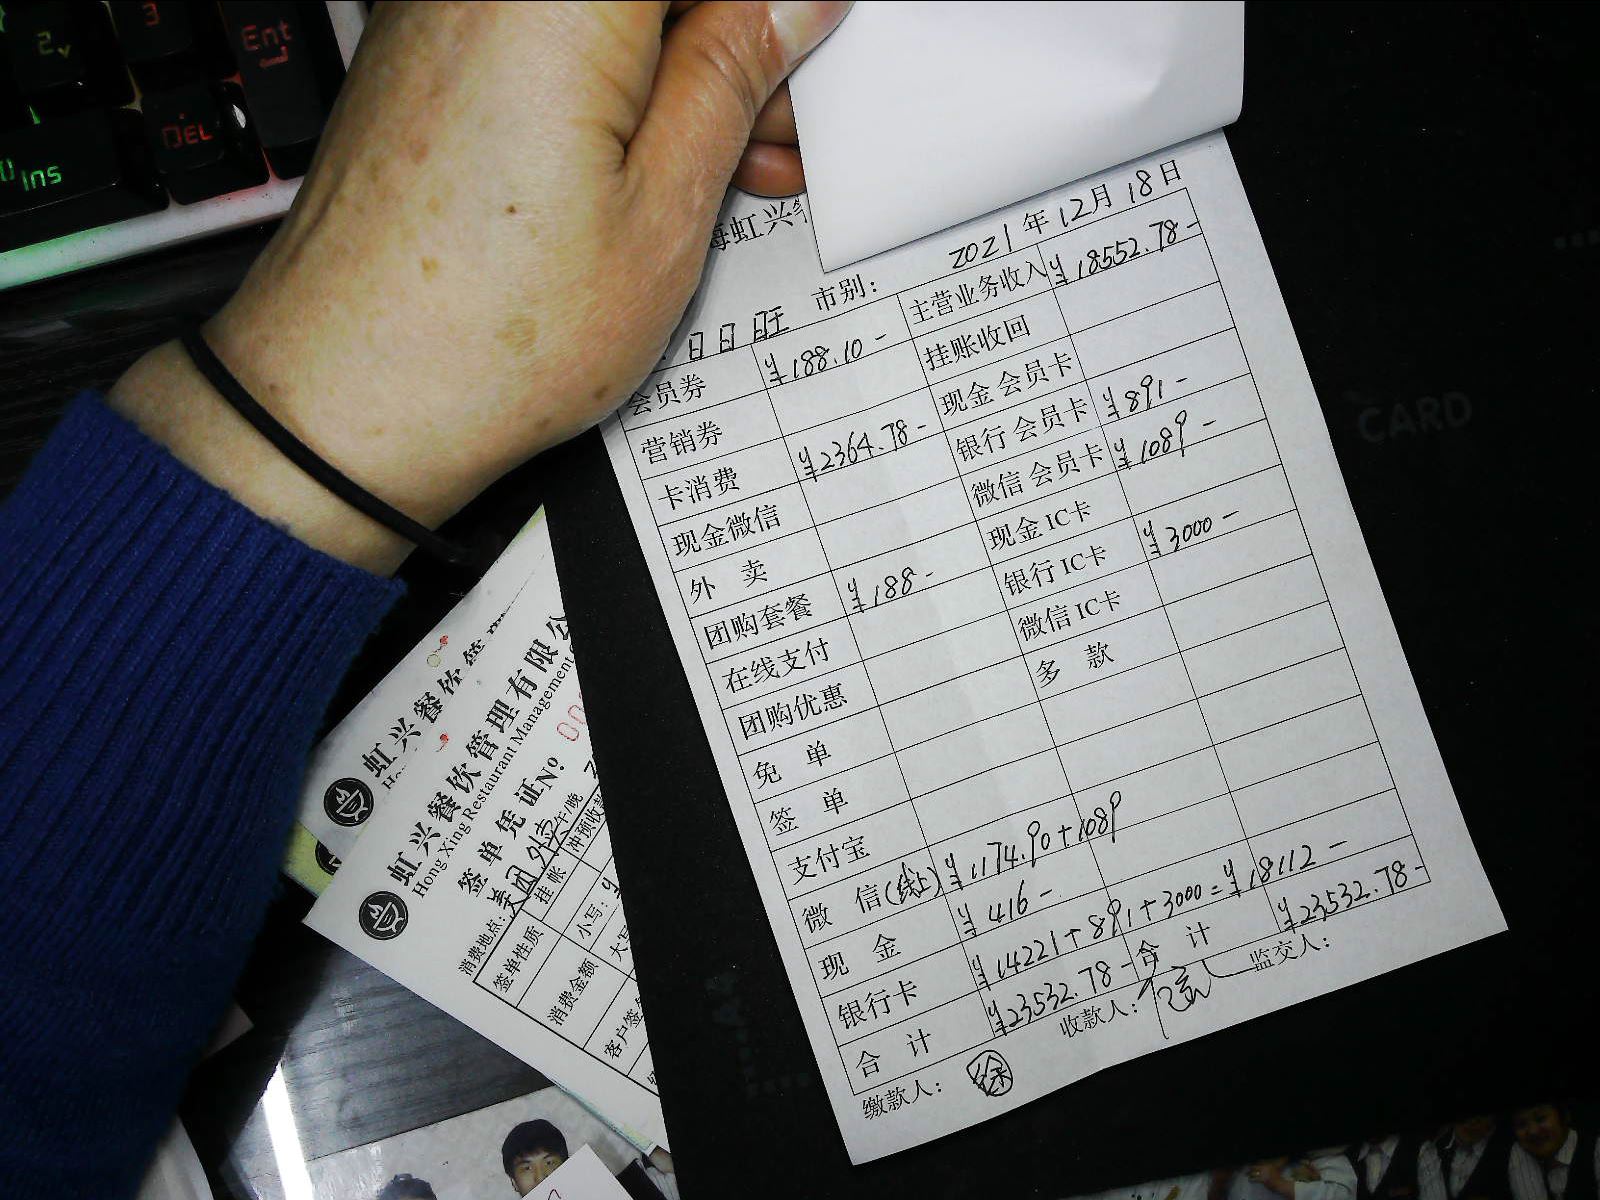 2
3
Ent
DEL
Ins
CARD
海虹兴
2021年12月18日
日日旺 市别：
会员券 ¥188.10- 主营业务收入 ¥18552.78-
营销券 挂账收回
卡消费 ¥2364.78- 现金 会员卡
现金微信 银行 会员卡 ¥891-
外 卖 微信 会员卡 ¥1089-
团购套餐 ¥188- 现金 IC卡
在线支付 银行 IC卡 ¥3000-
团购优惠 微信 IC卡
免 单 多 款
签 单
支付宝
微 信(线上) ¥1174.90+1089
现 金 ¥416-
银行卡 ¥14221+891+3000=¥18112-
合 计 ¥23532.78- 合 计 ¥23532.78-
缴款人： 徐 收款人： 监交人：
虹兴餐饮
虹兴餐饮管理有限公
Hong Xing Restaurant Management
签单凭证 Nº 00
消费地点：美团外卖 午/晚
签单性质 挂帐 冲预收款
消费金额 小写：¥
大写
客户签